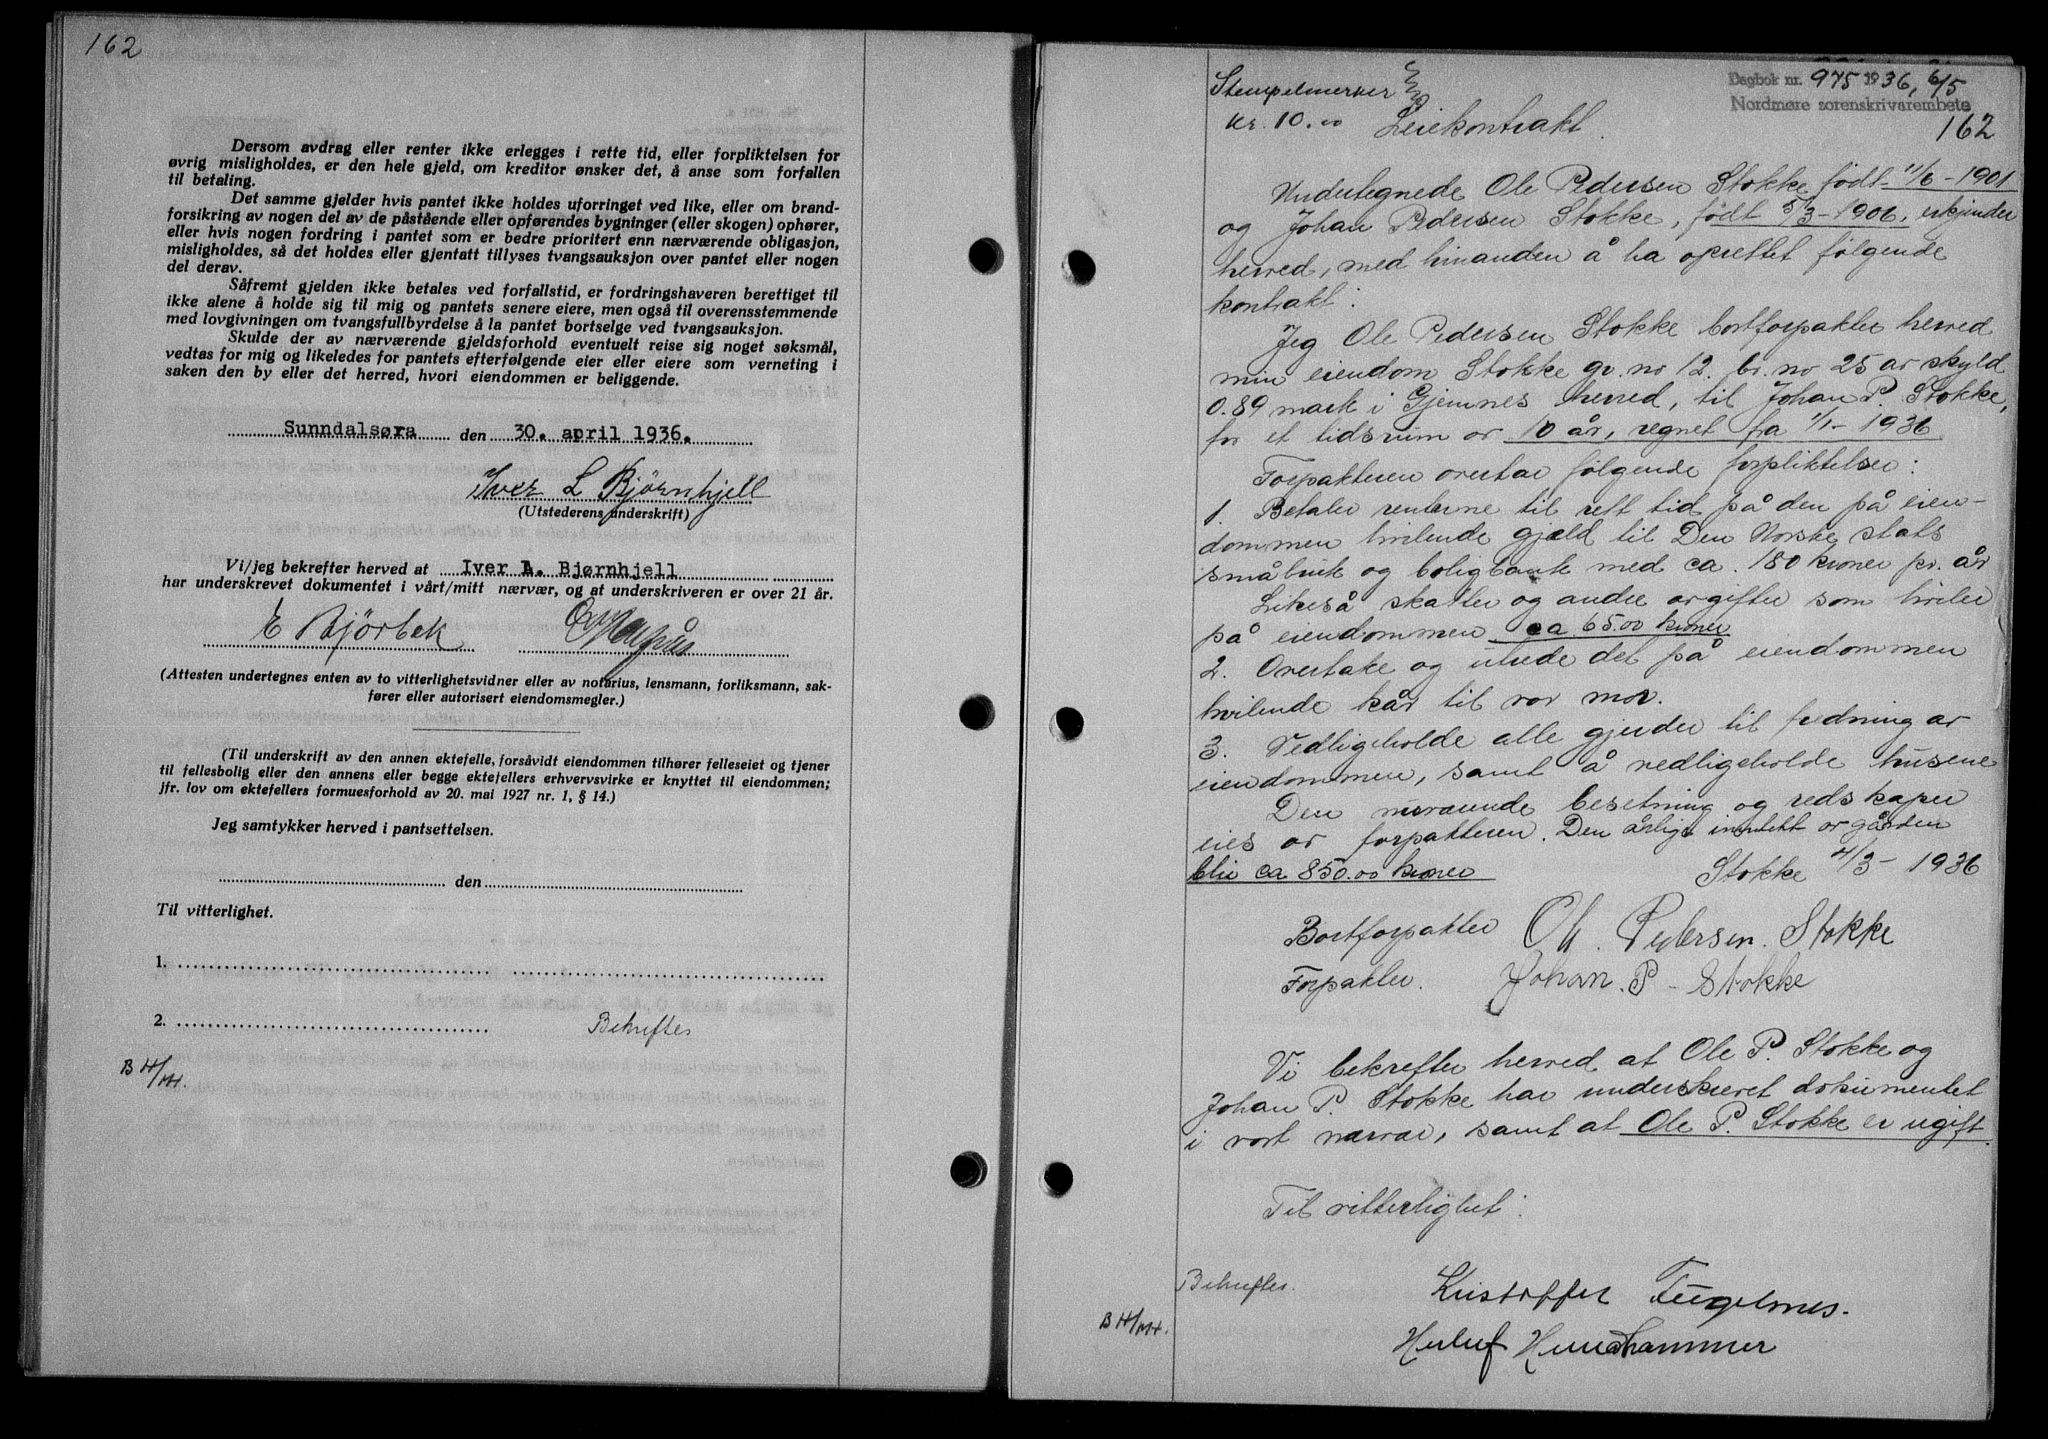 162
Dersom avdrag eller renter ikke erlegges i rette tid, eller forpliktelsen for
øvrig misligholdes, er den hele gjeld, om kreditor ønsker det, å anse som forfallen
til betaling.
Det samme gjelder hvis pantet ikke holdes uforringet ved like, eller om brand-
forsikring av nogen del av de påstående eller opførendes bygninger (eller skogen) ophører,
eller hvis nogen fordring i pantet som er bedre prioritert enn nærværende obligasjon,
misligholdes, så det holdes eller gjentatt tillyses tvangsauksjon over pantet eller nogen
del derav.
Såfremt gjelden ikke betales ved forfallstid, er fordringshaveren berettiget til
ikke alene å holde sig til mig og pantets senere eiere, men også til overensstemmende
med lovgivningen om tvangsfullbyrdelse å la pantet bortselge ved tvangsauksjon.
Skulde der av nærværende gjeldsforhold eventuelt reise sig noget søksmål,
vedtas for mig og likeledes for pantets efterfølgende eier eller eiere som verneting i
saken den by eller det herred, hvori eiendommen er beliggende.
Sunndalsøra den 30. april 1936.
Iver L Bjørnhjell
(Utstederens underskrift)
Vi/jeg bekrefter herved at Iver L. Bjørnhjell
har underskrevet dokumentet i vårt/mitt nærvær, og at underskriveren er over 21 år.
E Bjørbek
(Attesten undertegnes enten av to vitterlighetsvidner eller av notarius, lensmann, forliksmann, sak-
fører eller autorisert eiendomsmegler.)
(Til underskrift av den annen ektefelle, forsåvidt eiendommen tilhører felleseiet og tjener
til fellesbolig eller den annens eller begge ektefellers erhvervsvirke er knyttet til eiendommen;
jfr. lov om ektefellers formuesforhold av 20. mai 1927 nr. 1, § 14.)
Jeg samtykker herved i pantsettelsen.
den
Til vitterlighet.
1.
2.
Bekreftes
Dagbok nr. 975 1936, 6/5
Nordmøre sorenskrivarembete
162
Stempelmerker
kr. 10.00
Leiekontrakt.
Undertegnede Ole Pedersen Stokke født 11/6-1901
og Johan Pedersen Stokke, født 5/3-1906, erkjender
herved, med hinanden å ha oprettet følgende
kontrakt:
Jeg Ole Pedersen Stokke bortforpakter herved
min eiendom Stokke gr. no 12. br. no 25 av skyld
0.89 mark i Gjemnes herred, til Johan P. Stokke,
for et tidsrum av 10 år, regnet fra 1/1-1936
Forpakteren overtar følgende forpliktelser:
1. Betaler renterne til rett tid på den på eien-
dommen hvilende gjæld til Den Norske stats
småbruk og boligbank med ca. 180 kroner pr. år
Likeså skatter og andre avgifter som hviler
på eiendommen ca 65.00 kroner
2. Overtake og utrede det på eiendommen
hvilende kår til vor mor.
3. Vedligeholde alle gjerder til fredning av
eiendommen, samt å vedligeholde husene
Den nuværende besetning og redskaper
eies av forpakteren. Den årlige inntekt av gården
blir ca 850.00 kroner
Stokke 4/3-1936
Bortforpakter Ole Pedersen Stokke
Forpakter. Johan P. Stokke
Vi bekrefter herved at Ole P. Stokke og
Johan P. Stokke har underskrevet dokumentet
i vort nærvær, samt at Ole P. Stokke er ugift.
Til vitterlighet:
Bekreftes.
Kristoffer Fugelsnes.
Herluf Hundhammer